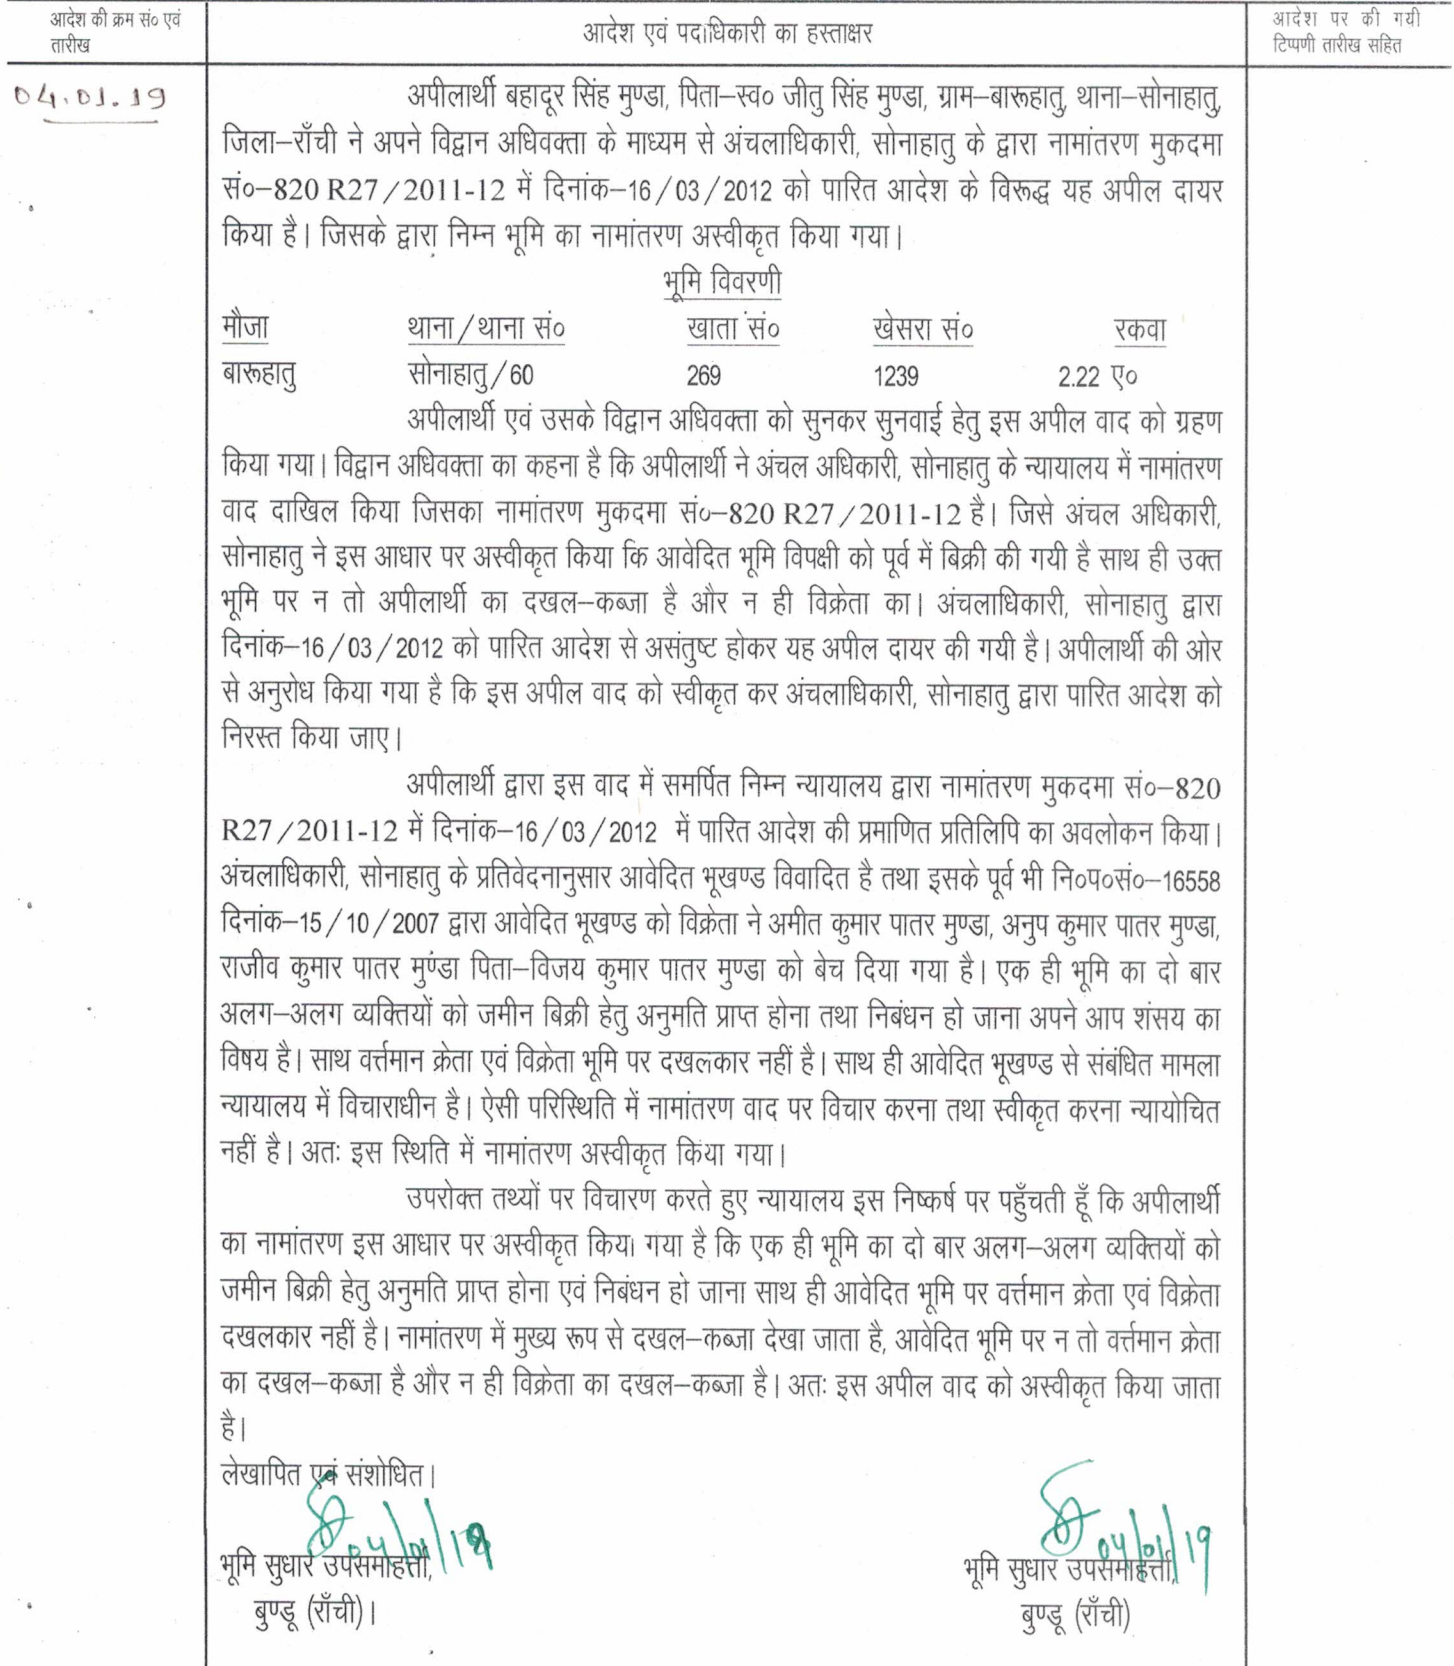 आदेश की क्रम सं० एवं
तारीख
आदेश एवं पदाधिकारी का हस्ताक्षर
आदेश पर की गयी
टिप्पणी तारीख सहित
04.01.19
अपीलार्थी बहादूर सिंह मुण्डा, पिता–स्व० जीतु सिंह मुण्डा, ग्राम–बारूहातु, थाना–सोनाहातु,
जिला–राँची ने अपने विद्वान अधिवक्ता के माध्यम से अंचलाधिकारी, सोनाहातु के द्वारा नामांतरण मुकदमा
सं०–820 R27/2011-12 में दिनांक–16/03/2012 को पारित आदेश के विरूद्ध यह अपील दायर
किया है। जिसके द्वारा निम्न भूमि का नामांतरण अस्वीकृत किया गया।
भूमि विवरणी
मौजा थाना/थाना सं० खाता सं० खेसरा सं० रकवा
बारूहातु सोनाहातु/60 269 1239 2.22 ए०
अपीलार्थी एवं उसके विद्वान अधिवक्ता को सुनकर सुनवाई हेतु इस अपील वाद को ग्रहण
किया गया। विद्वान अधिवक्ता का कहना है कि अपीलार्थी ने अंचल अधिकारी, सोनाहातु के न्यायालय में नामांतरण
वाद दाखिल किया जिसका नामांतरण मुकदमा सं०–820 R27/2011-12 है। जिसे अंचल अधिकारी,
सोनाहातु ने इस आधार पर अस्वीकृत किया कि आवेदित भूमि विपक्षी को पूर्व में बिक्री की गयी है साथ ही उक्त
भूमि पर न तो अपीलार्थी का दखल–कब्जा है और न ही विक्रेता का। अंचलाधिकारी, सोनाहातु द्वारा
दिनांक–16/03/2012 को पारित आदेश से असंतुष्ट होकर यह अपील दायर की गयी है। अपीलार्थी की ओर
से अनुरोध किया गया है कि इस अपील वाद को स्वीकृत कर अंचलाधिकारी, सोनाहातु द्वारा पारित आदेश को
निरस्त किया जाए।
अपीलार्थी द्वारा इस वाद में समर्पित निम्न न्यायालय द्वारा नामांतरण मुकदमा सं०–820
R27/2011-12 में दिनांक–16/03/2012 में पारित आदेश की प्रमाणित प्रतिलिपि का अवलोकन किया।
अंचलाधिकारी, सोनाहातु के प्रतिवेदनानुसार आवेदित भूखण्ड विवादित है तथा इसके पूर्व भी नि०प०सं०–16558
दिनांक–15/10/2007 द्वारा आवेदित भूखण्ड को विक्रेता ने अमीत कुमार पातर मुण्डा, अनुप कुमार पातर मुण्डा,
राजीव कुमार पातर मुण्डा पिता–विजय कुमार पातर मुण्डा को बेच दिया गया है। एक ही भूमि का दो बार
अलग–अलग व्यक्तियों को जमीन बिक्री हेतु अनुमति प्राप्त होना तथा निबंधन हो जाना अपने आप शंसय का
विषय है। साथ वर्त्तमान क्रेता एवं विक्रेता भूमि पर दखलकार नहीं है। साथ ही आवेदित भूखण्ड से संबंधित मामला
न्यायालय में विचाराधीन है। ऐसी परिस्थिति में नामांतरण वाद पर विचार करना तथा स्वीकृत करना न्यायोचित
नहीं है। अतः इस स्थिति में नामांतरण अस्वीकृत किया गया।
उपरोक्त तथ्यों पर विचारण करते हुए न्यायालय इस निष्कर्ष पर पहुँचती हूँ कि अपीलार्थी
का नामांतरण इस आधार पर अस्वीकृत किया गया है कि एक ही भूमि का दो बार अलग–अलग व्यक्तियों को
जमीन बिक्री हेतु अनुमति प्राप्त होना एवं निबंधन हो जाना साथ ही आवेदित भूमि पर वर्त्तमान क्रेता एवं विक्रेता
दखलकार नहीं है। नामांतरण में मुख्य रूप से दखल–कब्जा देखा जाता है, आवेदित भूमि पर न तो वर्त्तमान क्रेता
का दखल–कब्जा है और न ही विक्रेता का दखल–कब्जा है। अतः इस अपील वाद को अस्वीकृत किया जाता
है।
लेखापित एवं संशोधित।
04/01/19 04/01/19
भूमि सुधार उपसमाहर्त्ता, भूमि सुधार उपसमाहर्त्ता,
बुण्डू (राँची)। बुण्डू (राँची)